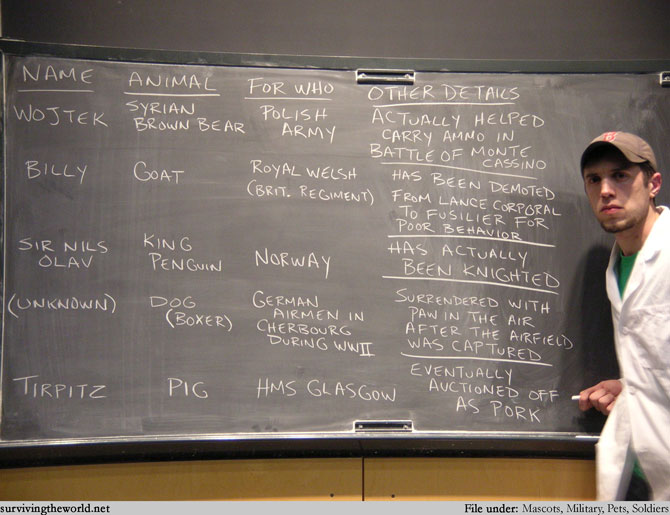 NAME ANIMAL FOR WHO OTHER DETAILS
WOJTEK SYRIAN BROWN BEAR POLISH ARMY ACTUALLY HELPED CARRY AMMO IN BATTLE OF MONTE CASSINO
BILLY GOAT ROYAL WELSH (BRIT. REGIMENT) HAS BEEN DEMOTED FROM LANCE CORPORAL TO FUSILIER FOR POOR BEHAVIOR
SIR NILS OLAV KING PENGUIN NORWAY HAS ACTUALLY BEEN KNIGHTED
(UNKNOWN) DOG (BOXER) GERMAN AIRMEN IN CHERBOURG DURING WWII SURRENDERED WITH PAW IN THE AIR AFTER THE AIRFIELD WAS CAPTURED
TIRPITZ PIG HMS GLASGOW EVENTUALLY AUCTIONED OFF AS PORK
survivingtheworld.net File under: Mascots, Military, Pets, Soldiers